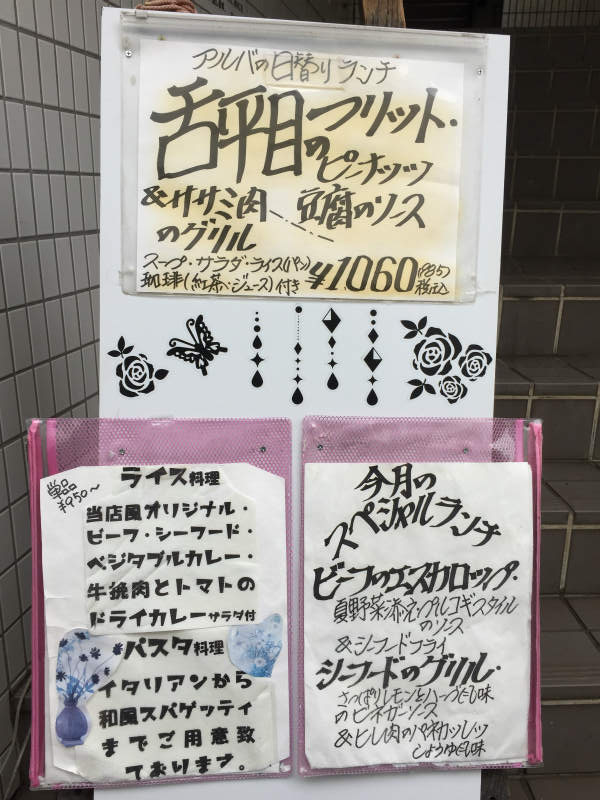 アルバの日替りランチ
舌平目のフリット・
ピーナッツ
&ササミ肉 豆腐のソース
のグリル
スープ・サラダ・ライス(パン)
珈琲(紅茶・ジュース)付き ¥1060 税込
単品
¥950〜
ライス料理
当店風オリジナル・
ビーフ・シーフード・
ベジタブルカレー・
牛挽肉とトマトの
ドライカレーサラダ付
パスタ料理
イタリアンから
和風スパゲッティ
までご用意致
ております。
今月の
スペシャルランチ
ビーフのエスカロップ・
夏野菜添ネップルコギスタイル
のソース
&シーフードフライ
シーフードのグリル・
さっぱりレモンとハーブだし味
のビネガーソース
&ヒレ肉のパネカツレツ
しょうゆだし味